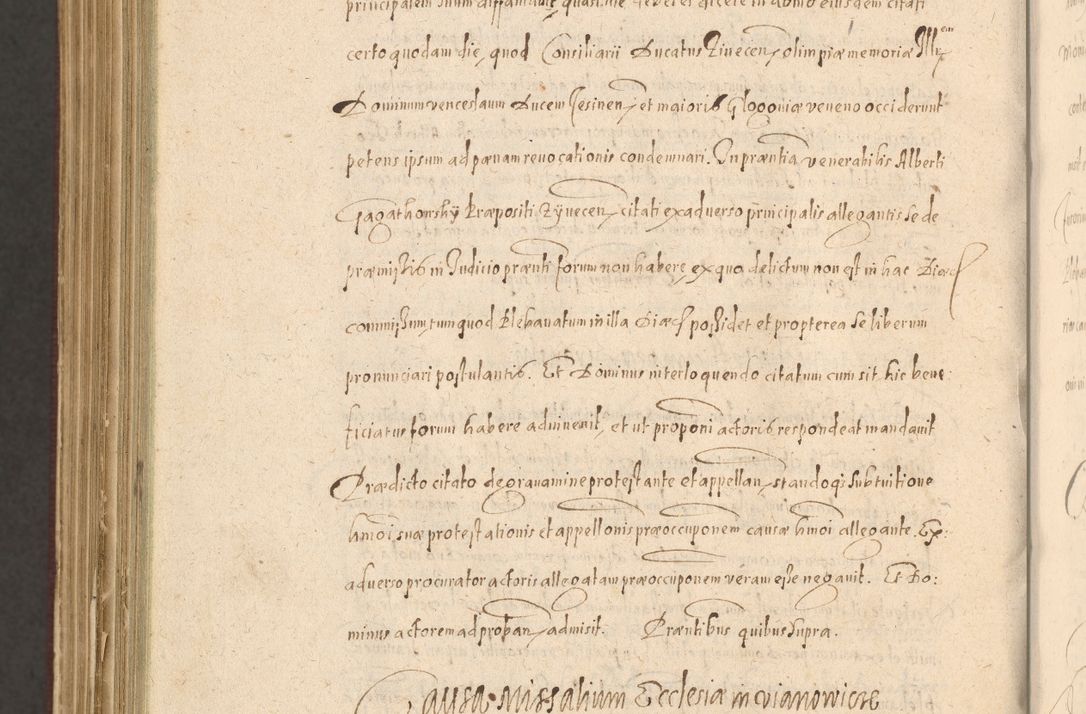 principalem suum diffamavit quasi ille deberet dicere in domo eiusdem citati
certo quodam die, quod Consiliarii Ducatus Zivecen, olim piæ memoriæ Illrem
Dominum venceslaum Ducem Tesinen, et maioris Glogoviæ veneno occiderunt
petens ipsum ad pænam revocationis condemnari. In præntia venerabilis Alberti
Gagathowskÿ Præpositi Zÿvecen, citati ex adverso principalis allegantis se de
præmissis in Iudicio prænti forum non habere, ex quo delictum non est in hac Diæc
commissum, tum quod Plebanatum in illa Diæc possidet et propterea se liberum
pronunciari postulantis. Et Dominus interloquendo citatum cum sit hic bene:
ficiatus forum habere adinvenit, et ut proponi actoris respondeat mandavit
Prædicto citato de gravamine protestante et appellan, standoqs sub tuitione
hmoi suæ protestationis et appellonis præoccuponem causæ hmoi allegante. Ex:
adverso procurator actoris allegatam præoccuponem veram esse negavit. Et Do:
minus actorem ad proban, admisit. Præntibus quibus supra.
Causa Missalium Ecclesiæ in